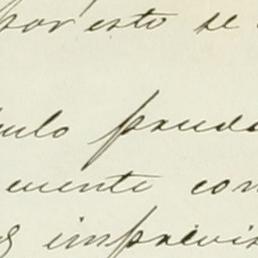 por esto se
culo prude
cuente con
os imprevis